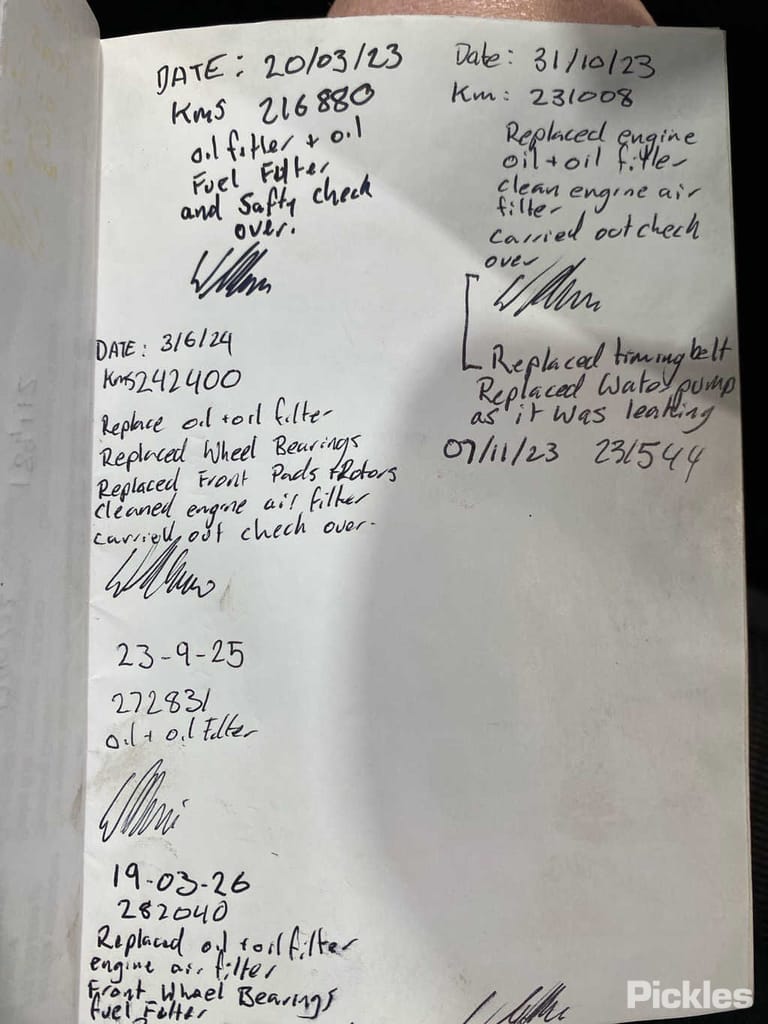 DATE: 20/03/23
Kms 216880
oil fitler + oil
Fuel Filter
and Safty check
over.
Date: 31/10/23
Km: 231008
Replaced engine
oil + oil fitler
clean engine air
filter
carried out check
over
Replaced timing belt
Replaced Water pump
as it was leaking
07/11/23 231544
DATE: 3/6/24
Kms 242400
Replace oil + oil filter
Replaced Wheel Bearings
Replaced Front Pads + Rotors
cleaned engine air filter
carried out check over.
23-9-25
272831
oil + oil Filter
19-03-26
282040
Replaced oil + oil filter
engine air filter
Front Wheel Bearings
fuel Filter
Pickles